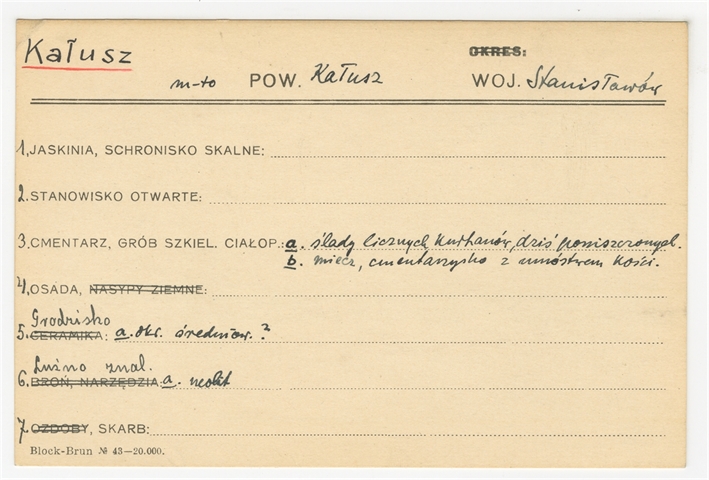 Kałusz
OKRES:
m-to POW. Kałusz WOJ. Stanisławów
1, JASKINIA, SCHRONISKO SKALNE:
2. STANOWISKO OTWARTE:
3, CMENTARZ, GRÓB SZKIEL. CIAŁOP.: a. ślady licznych kurhanów, dziś poniszczonych.
b. miecz, cmentarzysko z mnóstwem kości.
4, OSADA, NASYPY ZIEMNE:
Grodzisko
5. CERAMIKA: a. okr. średniow. ?
Luźno znal.
6. BROŃ, NARZĘDZIA a. neolit
7. OZDOBY, SKARB:
Block-Brun № 43—20.000.